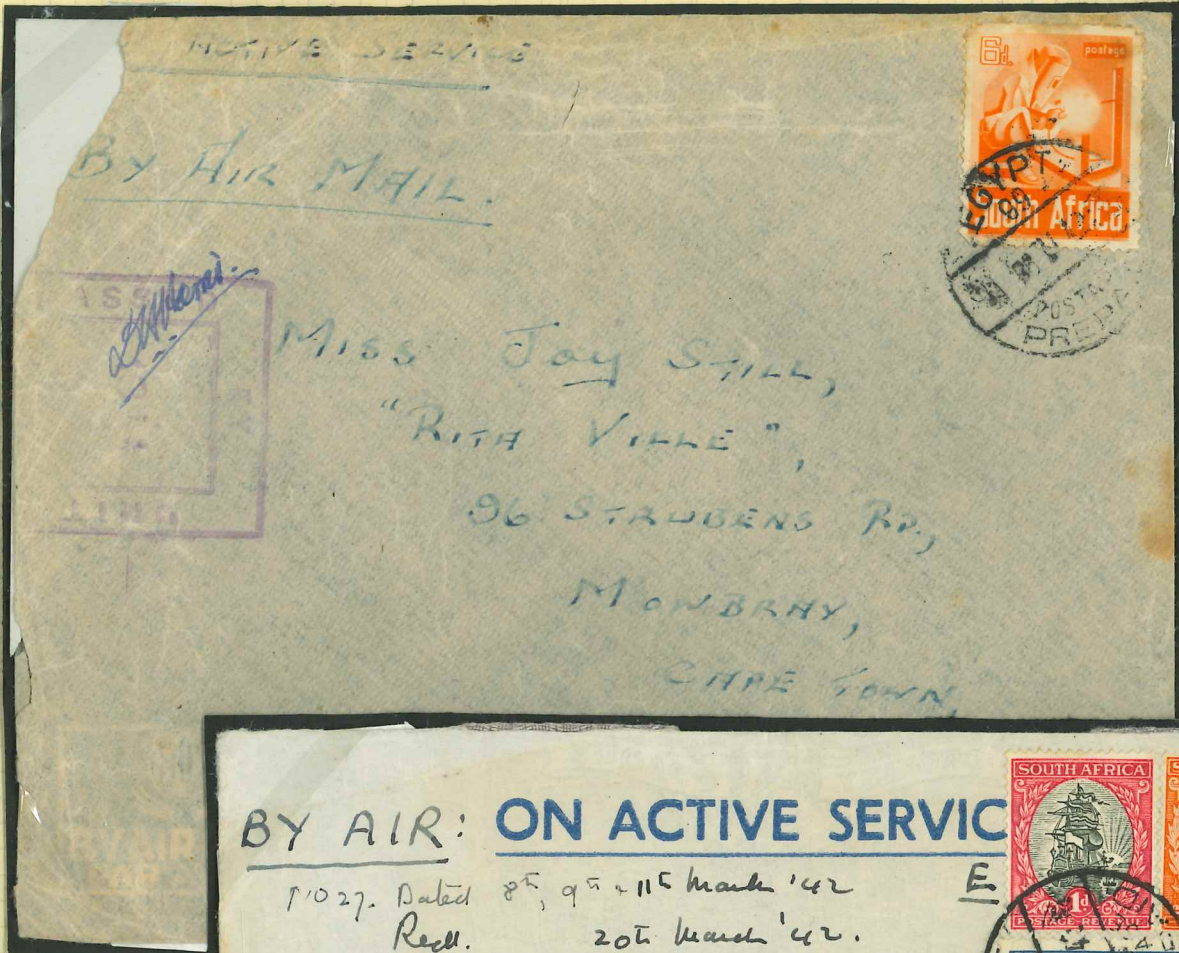 ACTIVE SERVICE
6d. postage
BY AIR MAIL.
South Africa
EGYPT
89
POSTA
PREPA
Miss Joy Still,
"RITA VILLE",
96 STRUBENS RD.,
MOWBRAY,
CAPE TOWN,
BY AIR: ON ACTIVE SERVIC
E
SOUTH AFRICA
1d
POSTAGE-REVENUE
Dated 8th, 9th & 11th March '42
Recd. 20th March '42.